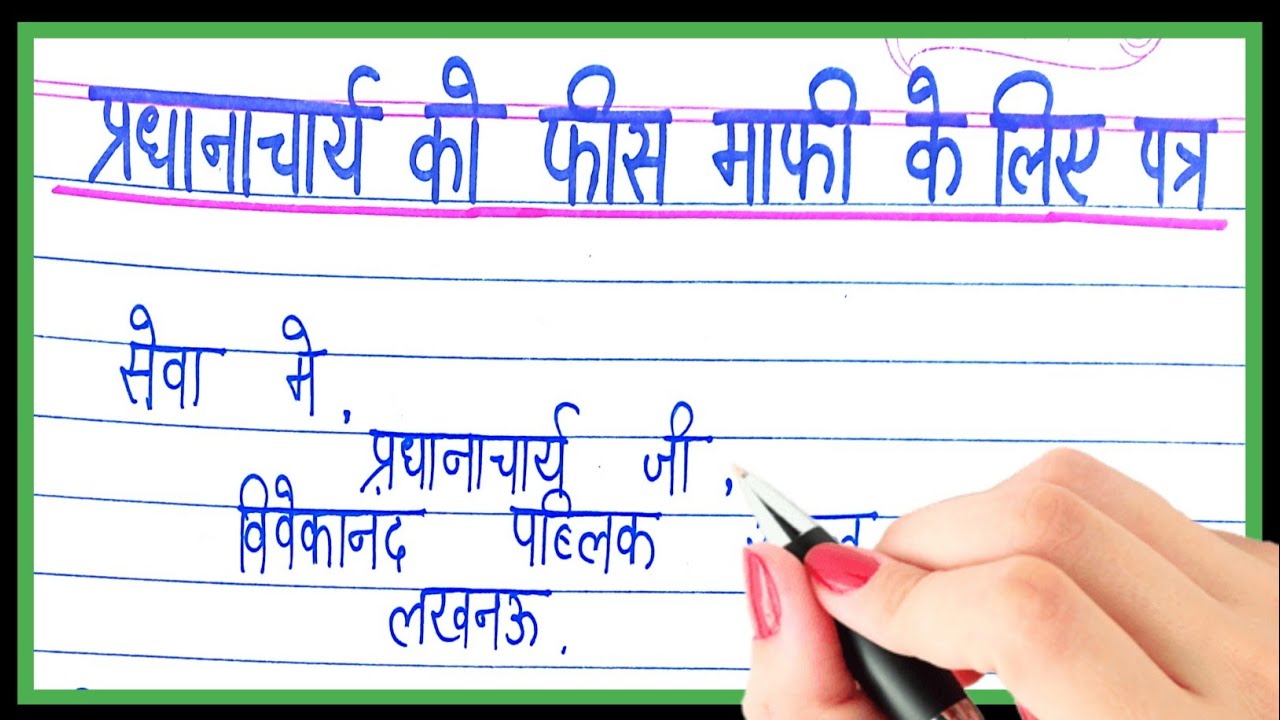 प्रधानाचार्य को फीस माफी के लिए पत्र
सेवा मे,
प्रधानाचार्य जी,
विवेकानद पब्लिक
लखनऊ.